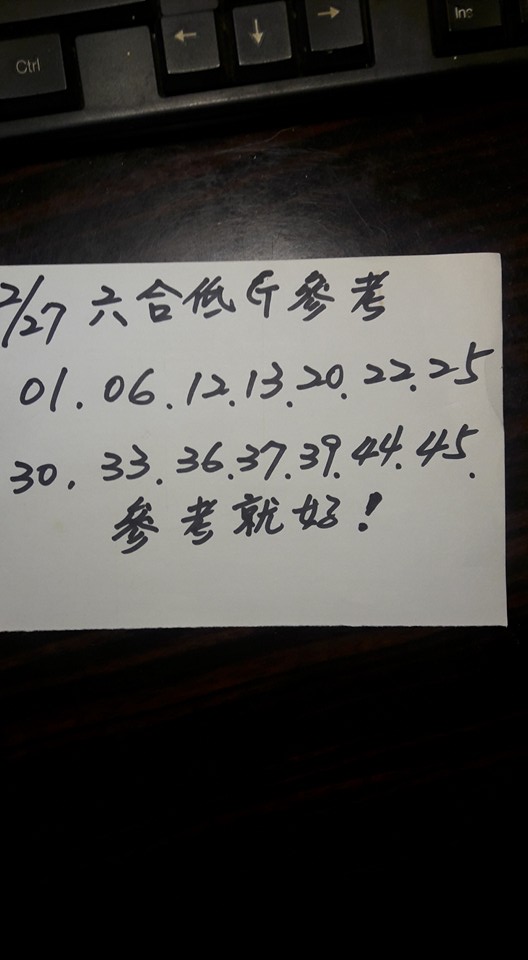 Ctrl
← ↓ →
Ins
2/27 六合低G參考
01.06.12.13.20.22.25
30.33.36.37.39.44.45.
參考就好!